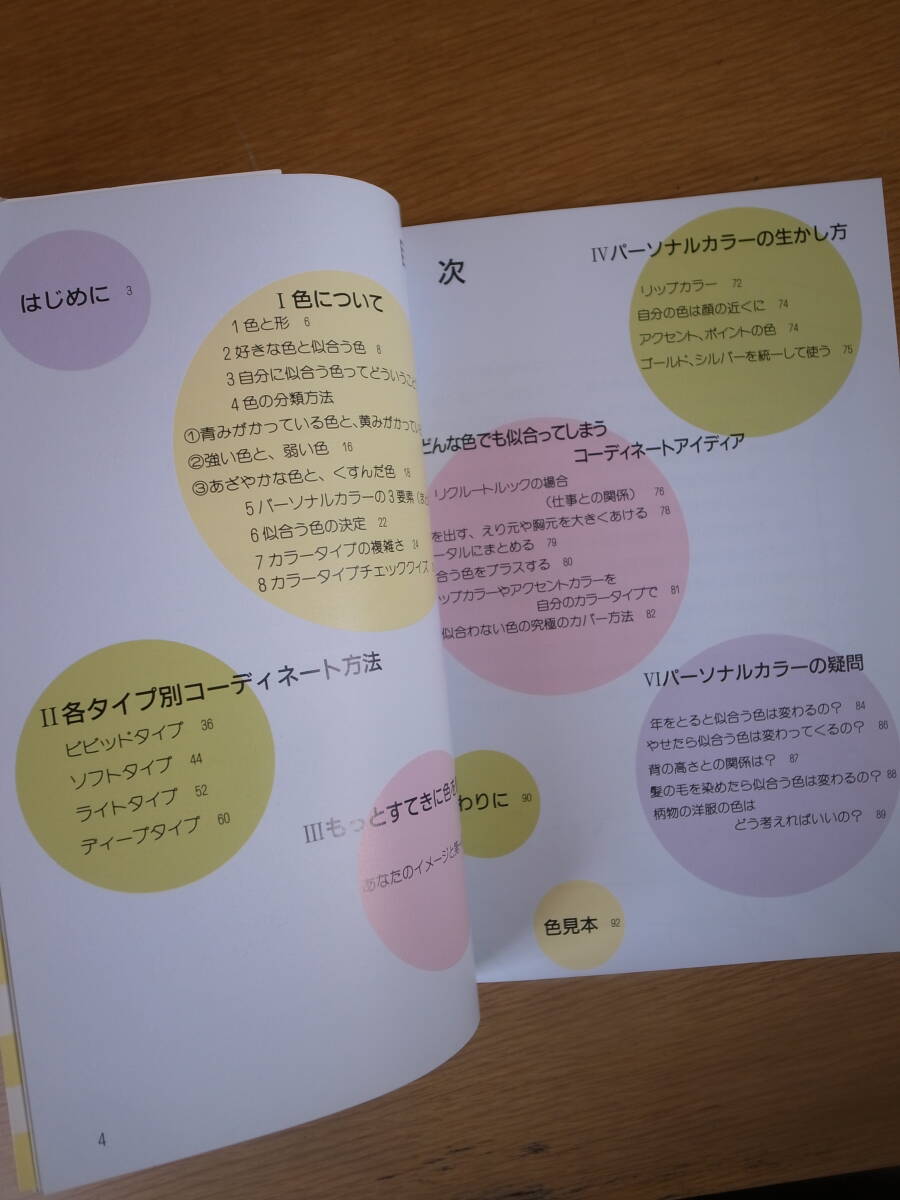 次
はじめに 3
I 色について
1 色と形 6
2 好きな色と似合う色 8
3 自分に似合う色ってどういうこと
4 色の分類方法
①青みがかっている色と、黄みがかってい
②強い色と、弱い色 16
③あざやかな色と、くすんだ色 18
5 パーソナルカラーの3要素
6 似合う色の決定 22
7 カラータイプの複雑さ 24
8 カラータイプチェッククイズ
II 各タイプ別コーディネート方法
ビビッドタイプ 36
ソフトタイプ 44
ライトタイプ 52
ディープタイプ 60
III もっとすてきに色を
あなたのイメージと
4
IV パーソナルカラーの生かし方
リップカラー 72
自分の色は顔の近くに 74
アクセント、ポイントの色 74
ゴールド、シルバーを統一して使う 75
どんな色でも似合ってしまう
コーディネートアイディア
リクルートルックの場合
（仕事との関係） 76
を出す、えり元や胸元を大きくあける 78
ータルにまとめる 79
合う色をプラスする 80
ップカラーやアクセントカラーを
自分のカラータイプで 81
似合わない色の究極のカバー方法 82
VI パーソナルカラーの疑問
年をとると似合う色は変わるの？ 84
やせたら似合う色は変わってくるの？ 86
背の高さとの関係は？ 87
髪の毛を染めたら似合う色は変わるの？ 88
柄物の洋服の色は
どう考えればいいの？ 89
わりに 90
色見本 92